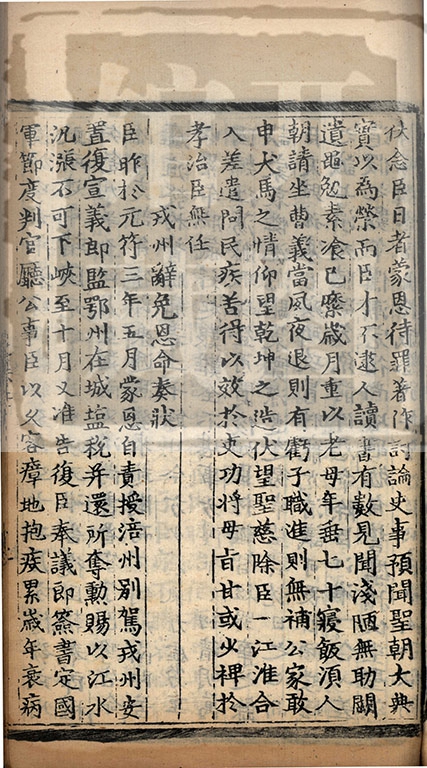 伏念臣日者蒙恩待罪著作討論史事預聞聖朝大典
實以為榮而臣才不逮人讀書有數見聞淺陋無助闕
遺黽勉素飡已縻歲月重以老母年垂七十寢飯須人
朝請坐曹義當夙夜退則有虧子職進則無補公家敢
申犬馬之情仰望乾坤之造伏望聖慈除臣一江淮合
入差遣問民疾苦得以效於吏功將母旨甘或少稗於
孝治臣無任
戎州辭免恩命奏狀
臣昨於元符三年五月蒙恩自責授涪州別駕戎州安
置復宣義郎監鄂州在城塩稅并還所奪勳賜以江水
汎漲不可下峽至十月又准告復臣奉議郎簽書定國
軍節度判官廳公事臣以久客瘴地抱疾累歲年衰病